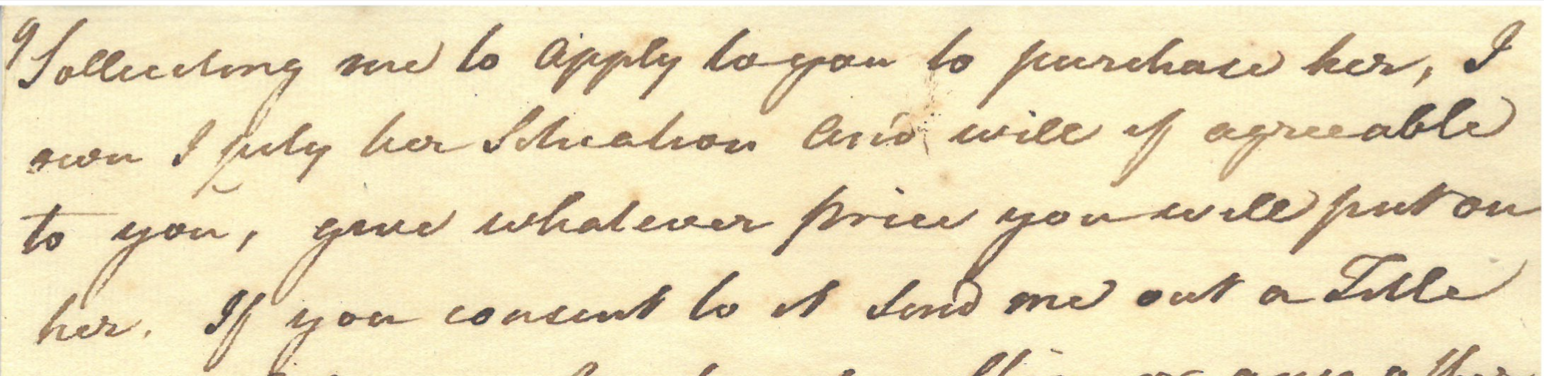 Solliciting me to apply to you to purchase her, I
own I pity her Situation and will if agreeable
to you, give whatever price you will put on
her. If you consent to it send me out a Title
other